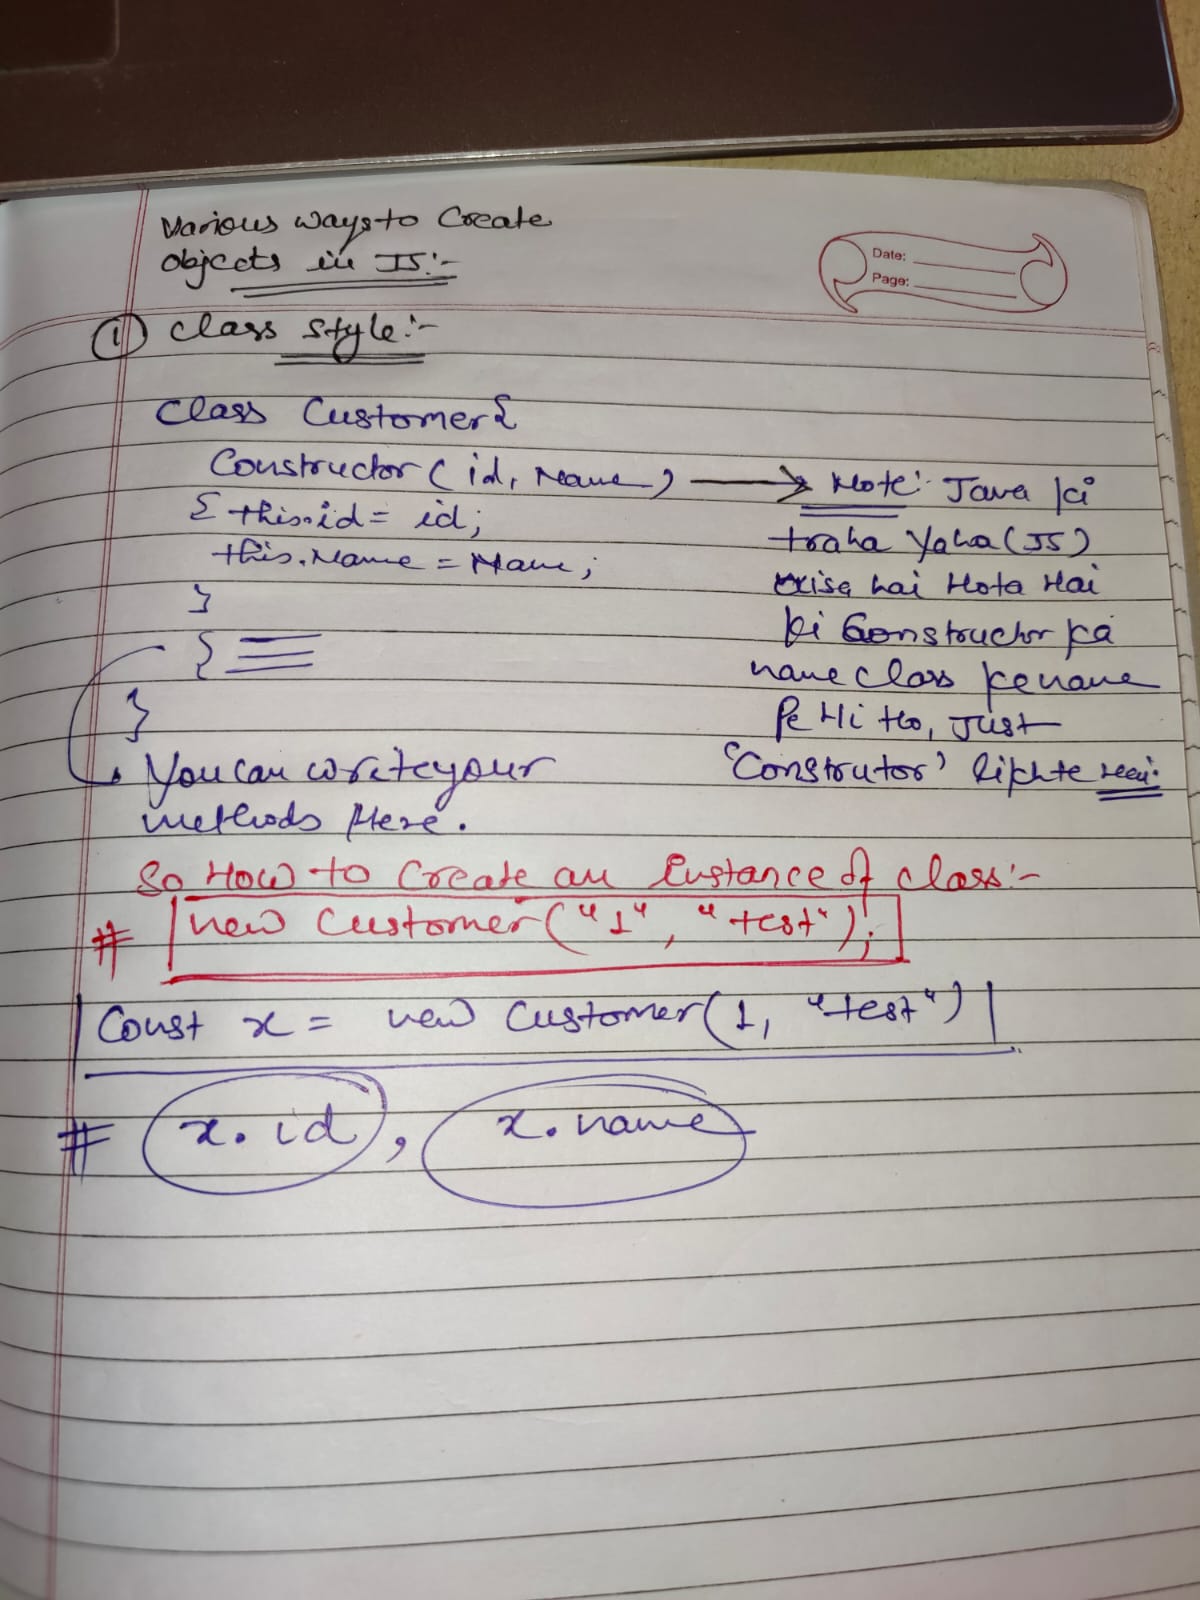 Various ways to Create
objects in JS:-
Date:
Page:
① Class Style:-
Class Customer{
Constructor ( id, Name )
{ this.id = id;
this.Name = Name;
}
{
}
You can write your
methods Here.
→ Note: Java ki
traha Yaha (JS)
hai Hota Hai
ki Constructor ka
name Class ke name
Pe Hi Ho, Just
'Construtor' likhte Hai.
So How to Create an Instance of class:-
# new Customer("1", "test");
Const x = new Customer(1, "test")
# x.id , x.name